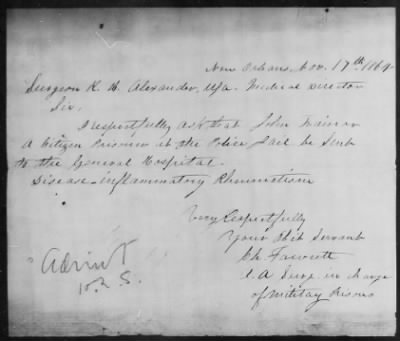 New Orleans, Nov. 17th 1864
Surgeon R. H. Alexander, USA. Medical Director
Sir,
I respectfully ask that John
a Citizen Prisoner at the Police Jail be Sent
to the General Hospital.
Disease - inflammatory Rheumatism
Very Respectfully
Your Obt Servant
Ch.
A. A Surg. in charge
of Military Prisons
Admit